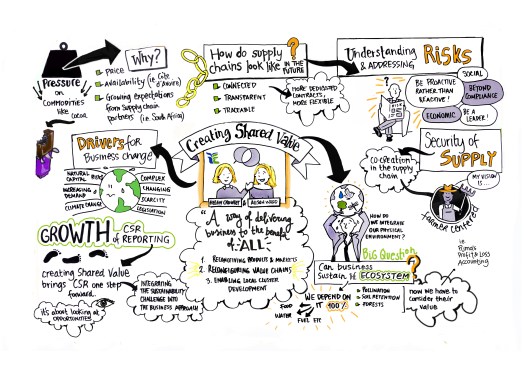 Pressure
on
COMMODITIES
like
cocoa
Why?
Price
Availability (i.e Côte
d'Ivoire)
Growing expectations
from Supply chain
partners (i.e. South Africa)
How do supply
chains look like IN THE
FUTURE ?
CONNECTED
TRANSPARENT
TRACEABLE
MORE DEDICATED
CONTRACTS,
MORE FLEXIBLE
Understanding
& ADDRESSING RISKS
BE PROACTIVE
RATHER THAN
REACTIVE!
SOCIAL
BEYOND
COMPLIANCE
ECONOMIC
BE A
LEADER!
Drivers for
Business change
NATURAL
CAPITAL
INCREASING
DEMAND
CLIMATE CHANGE
COMPLEX
CHANGING
SCARCITY
LEGISLATION
Creating Shared Value
"A way of delivering
business to the benefit
of ALL"
1. RECONCEIVING PRODUCTS & MARKETS
2. RECONFIGURING VALUE CHAINS
3. ENABLING LOCAL CLUSTER
DEVELOPMENT
Security of
SUPPLY
co-creation
in the supply
chain
MY VISION
IS ...
farmer centered
GROWTH of CSR
REPORTING
creating Shared Value
brings CSR one step
forward.
It's about looking at
OPPORTUNITIES
INTEGRATING
THE SUSTAINABILITY
CHALLENGE INTO
THE BUSINESS APPROACH
HOW DO
WE INTEGRATE
OUR PHYSICAL
ENVIRONMENT?
BIG Question
Can business
Sustain its ECOSYSTEM ?
WE DEPEND ON
IT 100%
FOOD
WATER
FUEL ETC
POLLINATION
SOIL RETENTION
FORESTS
i.e.
Puma's
Profit & Loss
Accounting
now we have to
consider their
value